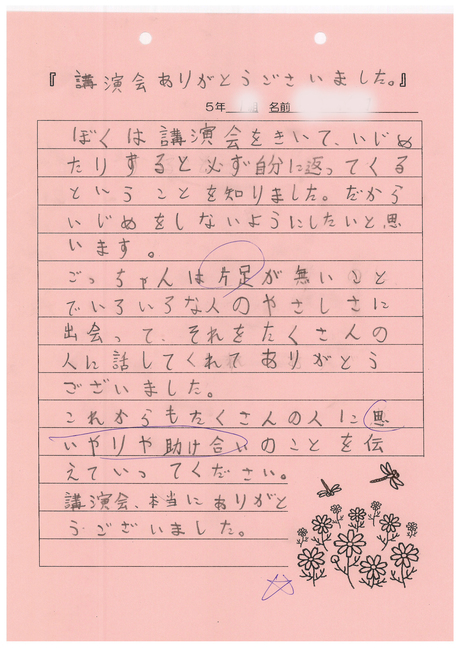 『講演会ありがとうございました。』
5年 名前
ぼくは講演会をきいて、いじめ
たりすると必ず自分に返ってくる
ということを知りました。だから
いじめをしないようにしたいと思
います。
ごっちゃんは片足が無いこと
でいろいろな人のやさしさに
出会って、それをたくさんの
人に話してくれてありがとう
ございました。
これからもたくさんの人に思
いやりや助け合いのことを伝
えていってください。
講演会、本当にありがと
うございました。